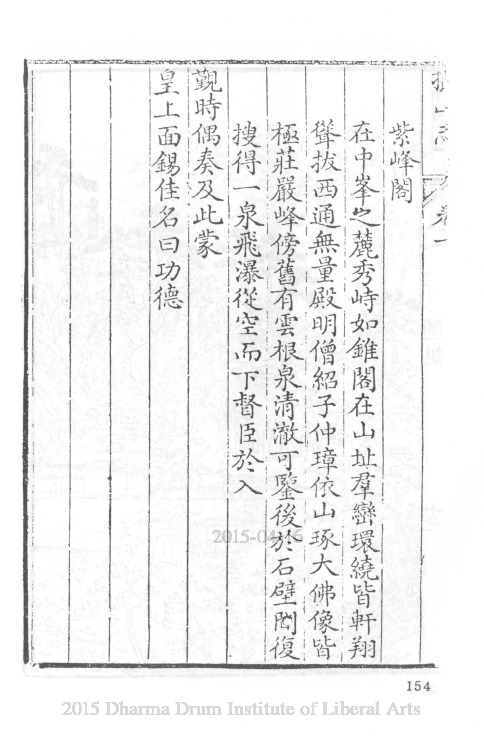 紫峰閣
在中峯之麓秀峙如錐閣在山址羣巒環繞皆軒翔
聳拔西通無量殿明僧紹子仲璋依山琢大佛像皆
極莊嚴峰傍舊有雲根泉清澈可鑒後於石壁間復
搜得一泉飛瀑從空而下督臣於入
覲時偶奏及此蒙
皇上面錫佳名曰功德
2015-04-16
154
2015 Dharma Drum Institute of Liberal Arts